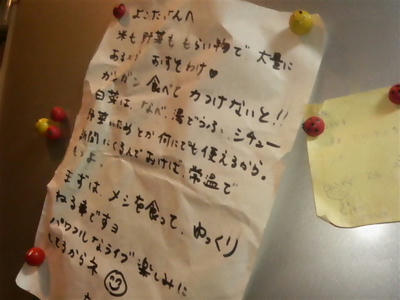 よこたさんへ
米も野菜ももらい物で大量に
あるので おすそわけ♥
ガンガン食べて力つけないと!!
白菜は、なべ、湯どうふ、シチュー
野菜いためとか何にでも使えるから。
新聞にくるんでおけば、常温で
もつよ
まずは、メシを食って、ゆっくり
ねる事ですョ
パワフルなライブ楽しみに
してるからネ